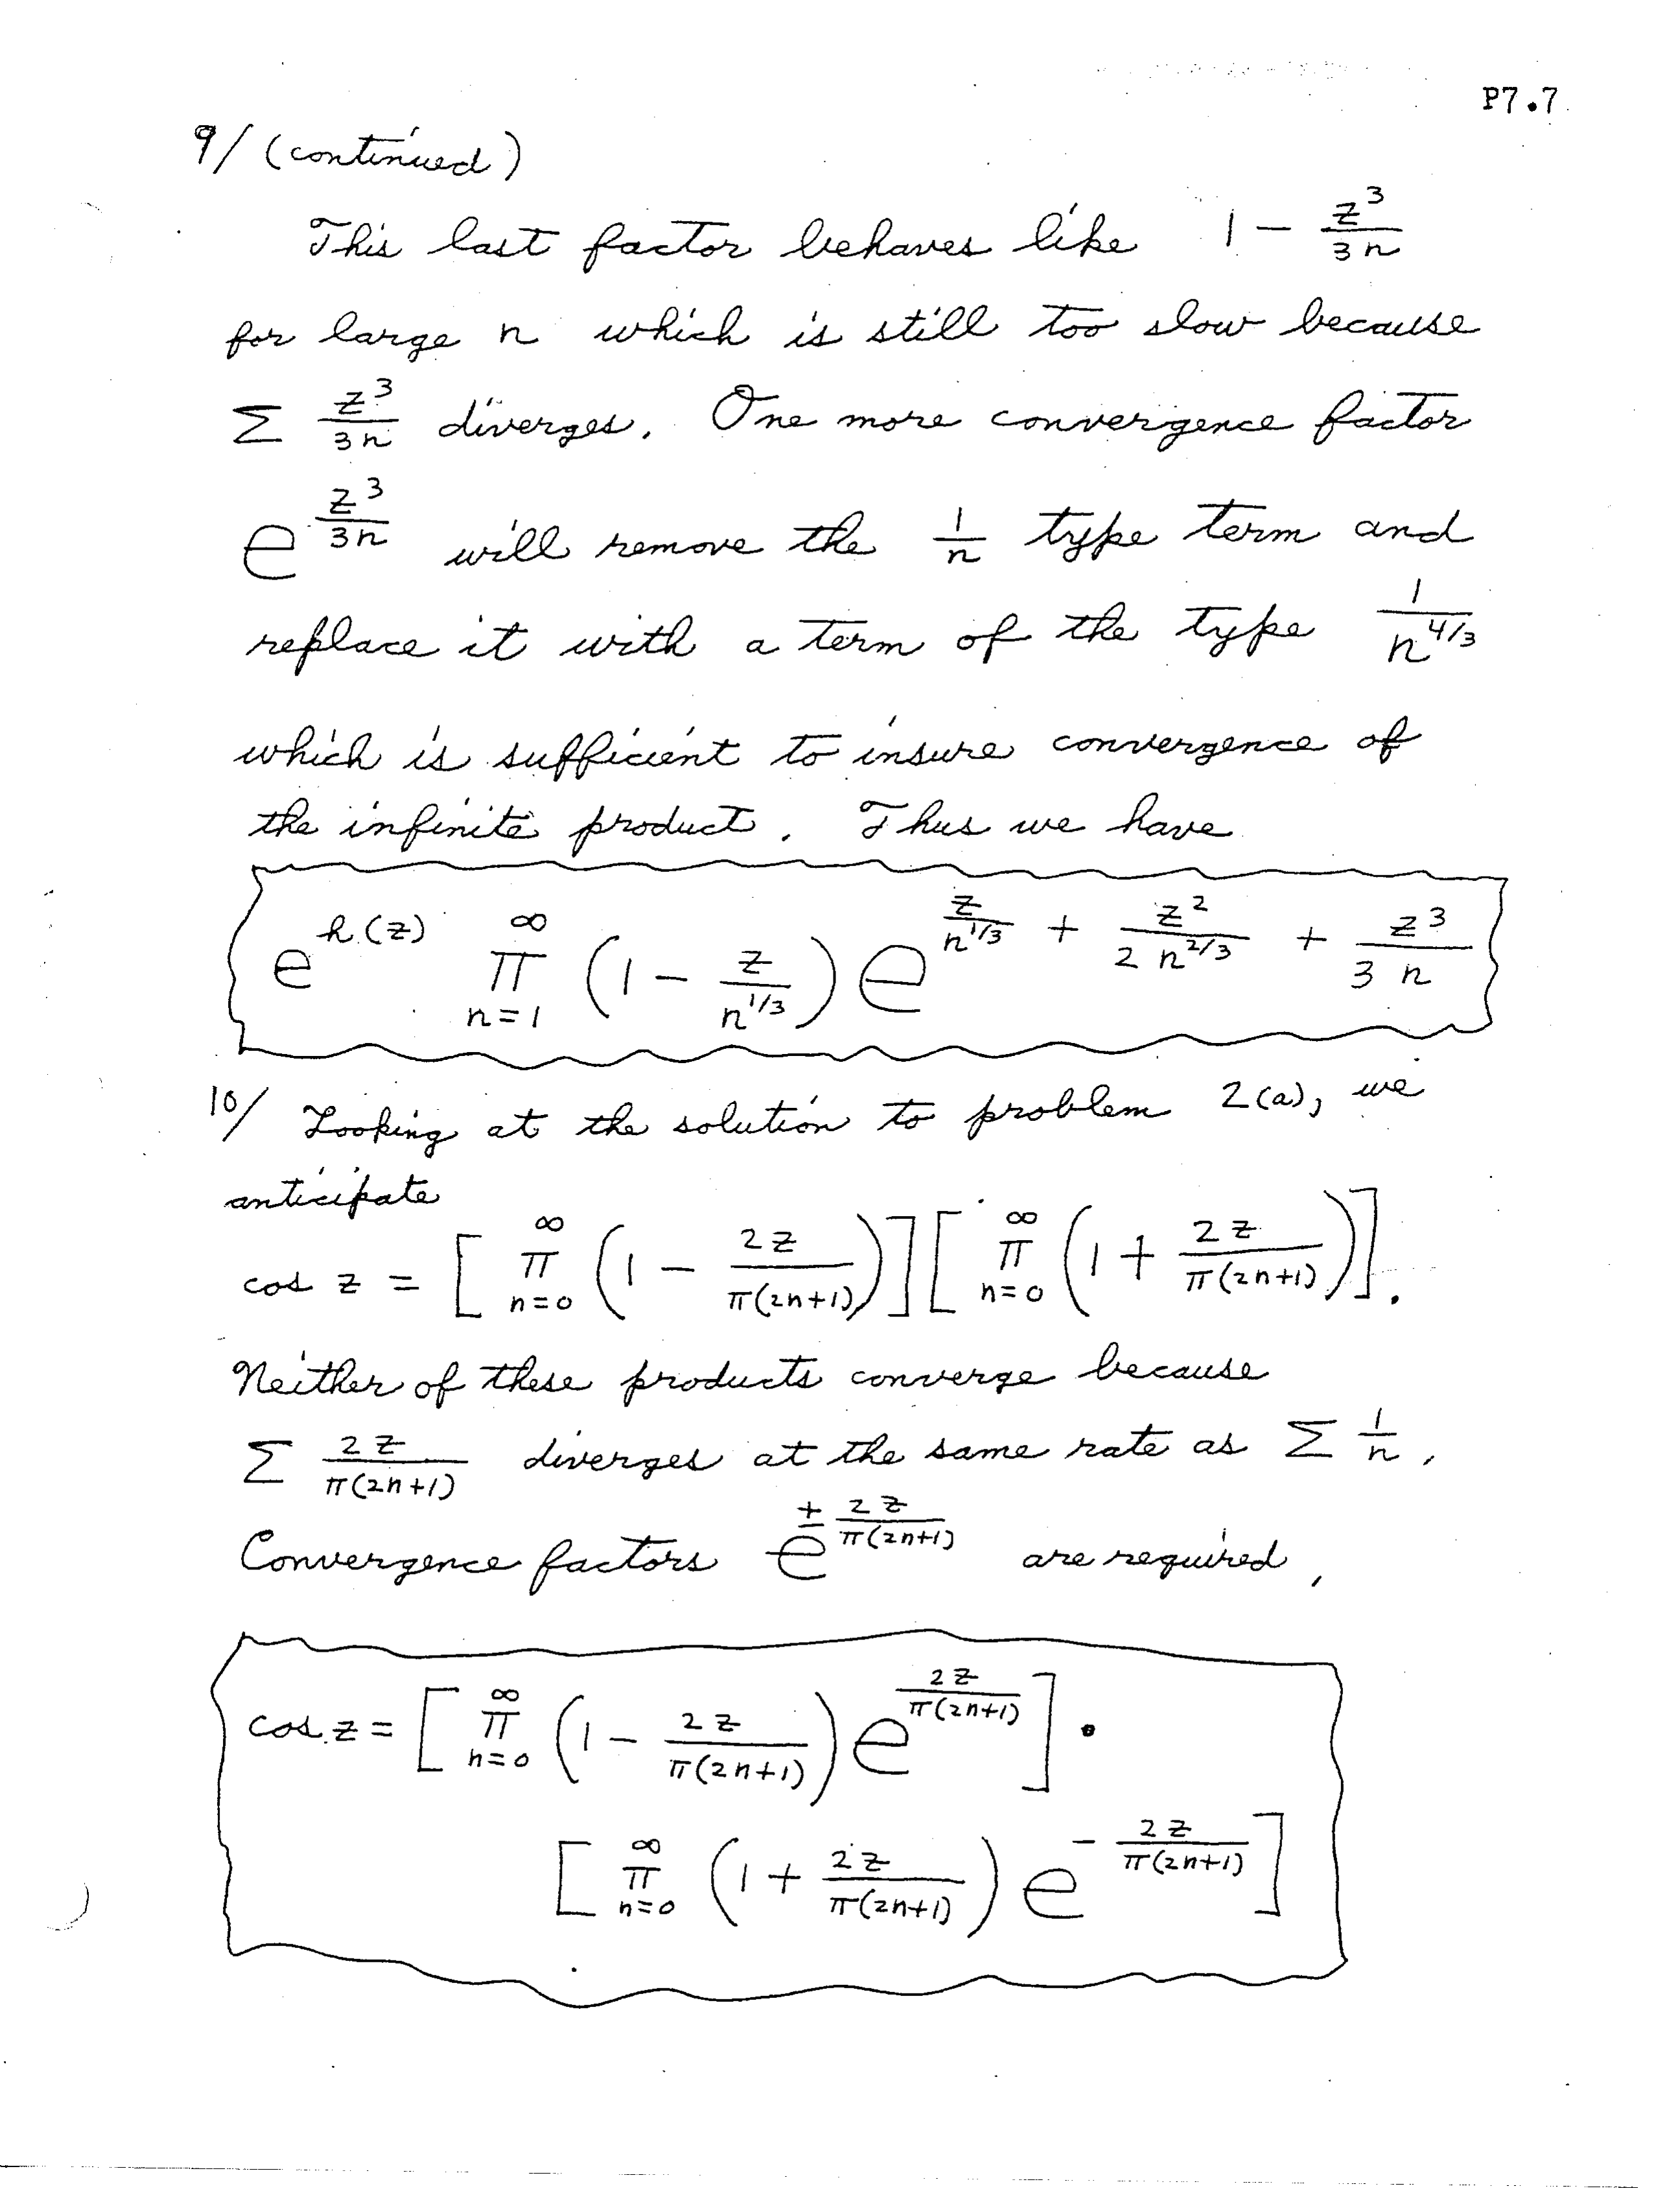 P7.7
9/ (continued)
This last factor behaves like 1 - z^3/3n
for large n which is still too slow because
Σ z^3/3n diverges. One more convergence factor
e^(z^3/3n) will remove the 1/n type term and
replace it with a term of the type 1/n^(4/3)
which is sufficient to insure convergence of
the infinite product. Thus we have
e^(h(z)) ∏_{n=1}^{∞} (1 - z/n^(1/3)) e^(z/n^(1/3) + z^2/(2 n^(2/3)) + z^3/(3 n))
10/ Looking at the solution to problem 2(a), we
anticipate
cos z = [∏_{n=0}^{∞} (1 - 2z/π(2n+1))][∏_{n=0}^{∞} (1 + 2z/π(2n+1))].
Neither of these products converge because
Σ 2z/π(2n+1) diverges at the same rate as Σ 1/n.
Convergence factors e^(± 2z/π(2n+1)) are required.
cos z = [∏_{n=0}^{∞} (1 - 2z/π(2n+1)) e^(2z/π(2n+1))] •
[∏_{n=0}^{∞} (1 + 2z/π(2n+1)) e^(- 2z/π(2n+1))]